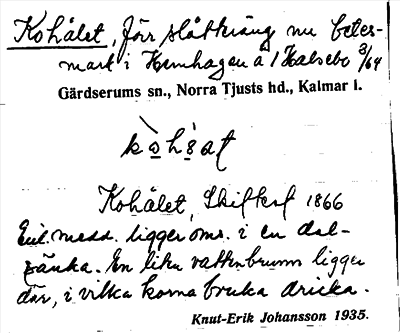 Kohålet, förr slåtteräng nu betes-
mark i Hemhagen å 1 Halsebo 3/64
Gärdserums sn., Norra Tjusts hd., Kalmar l.
Kohålet, Skifteskf 1866
Enl. medd. ligger omr. i en dal-
sänka. En liten vattenbrunn ligger
där, i vilka korna bruka dricka.
Knut-Erik Johansson 1935.